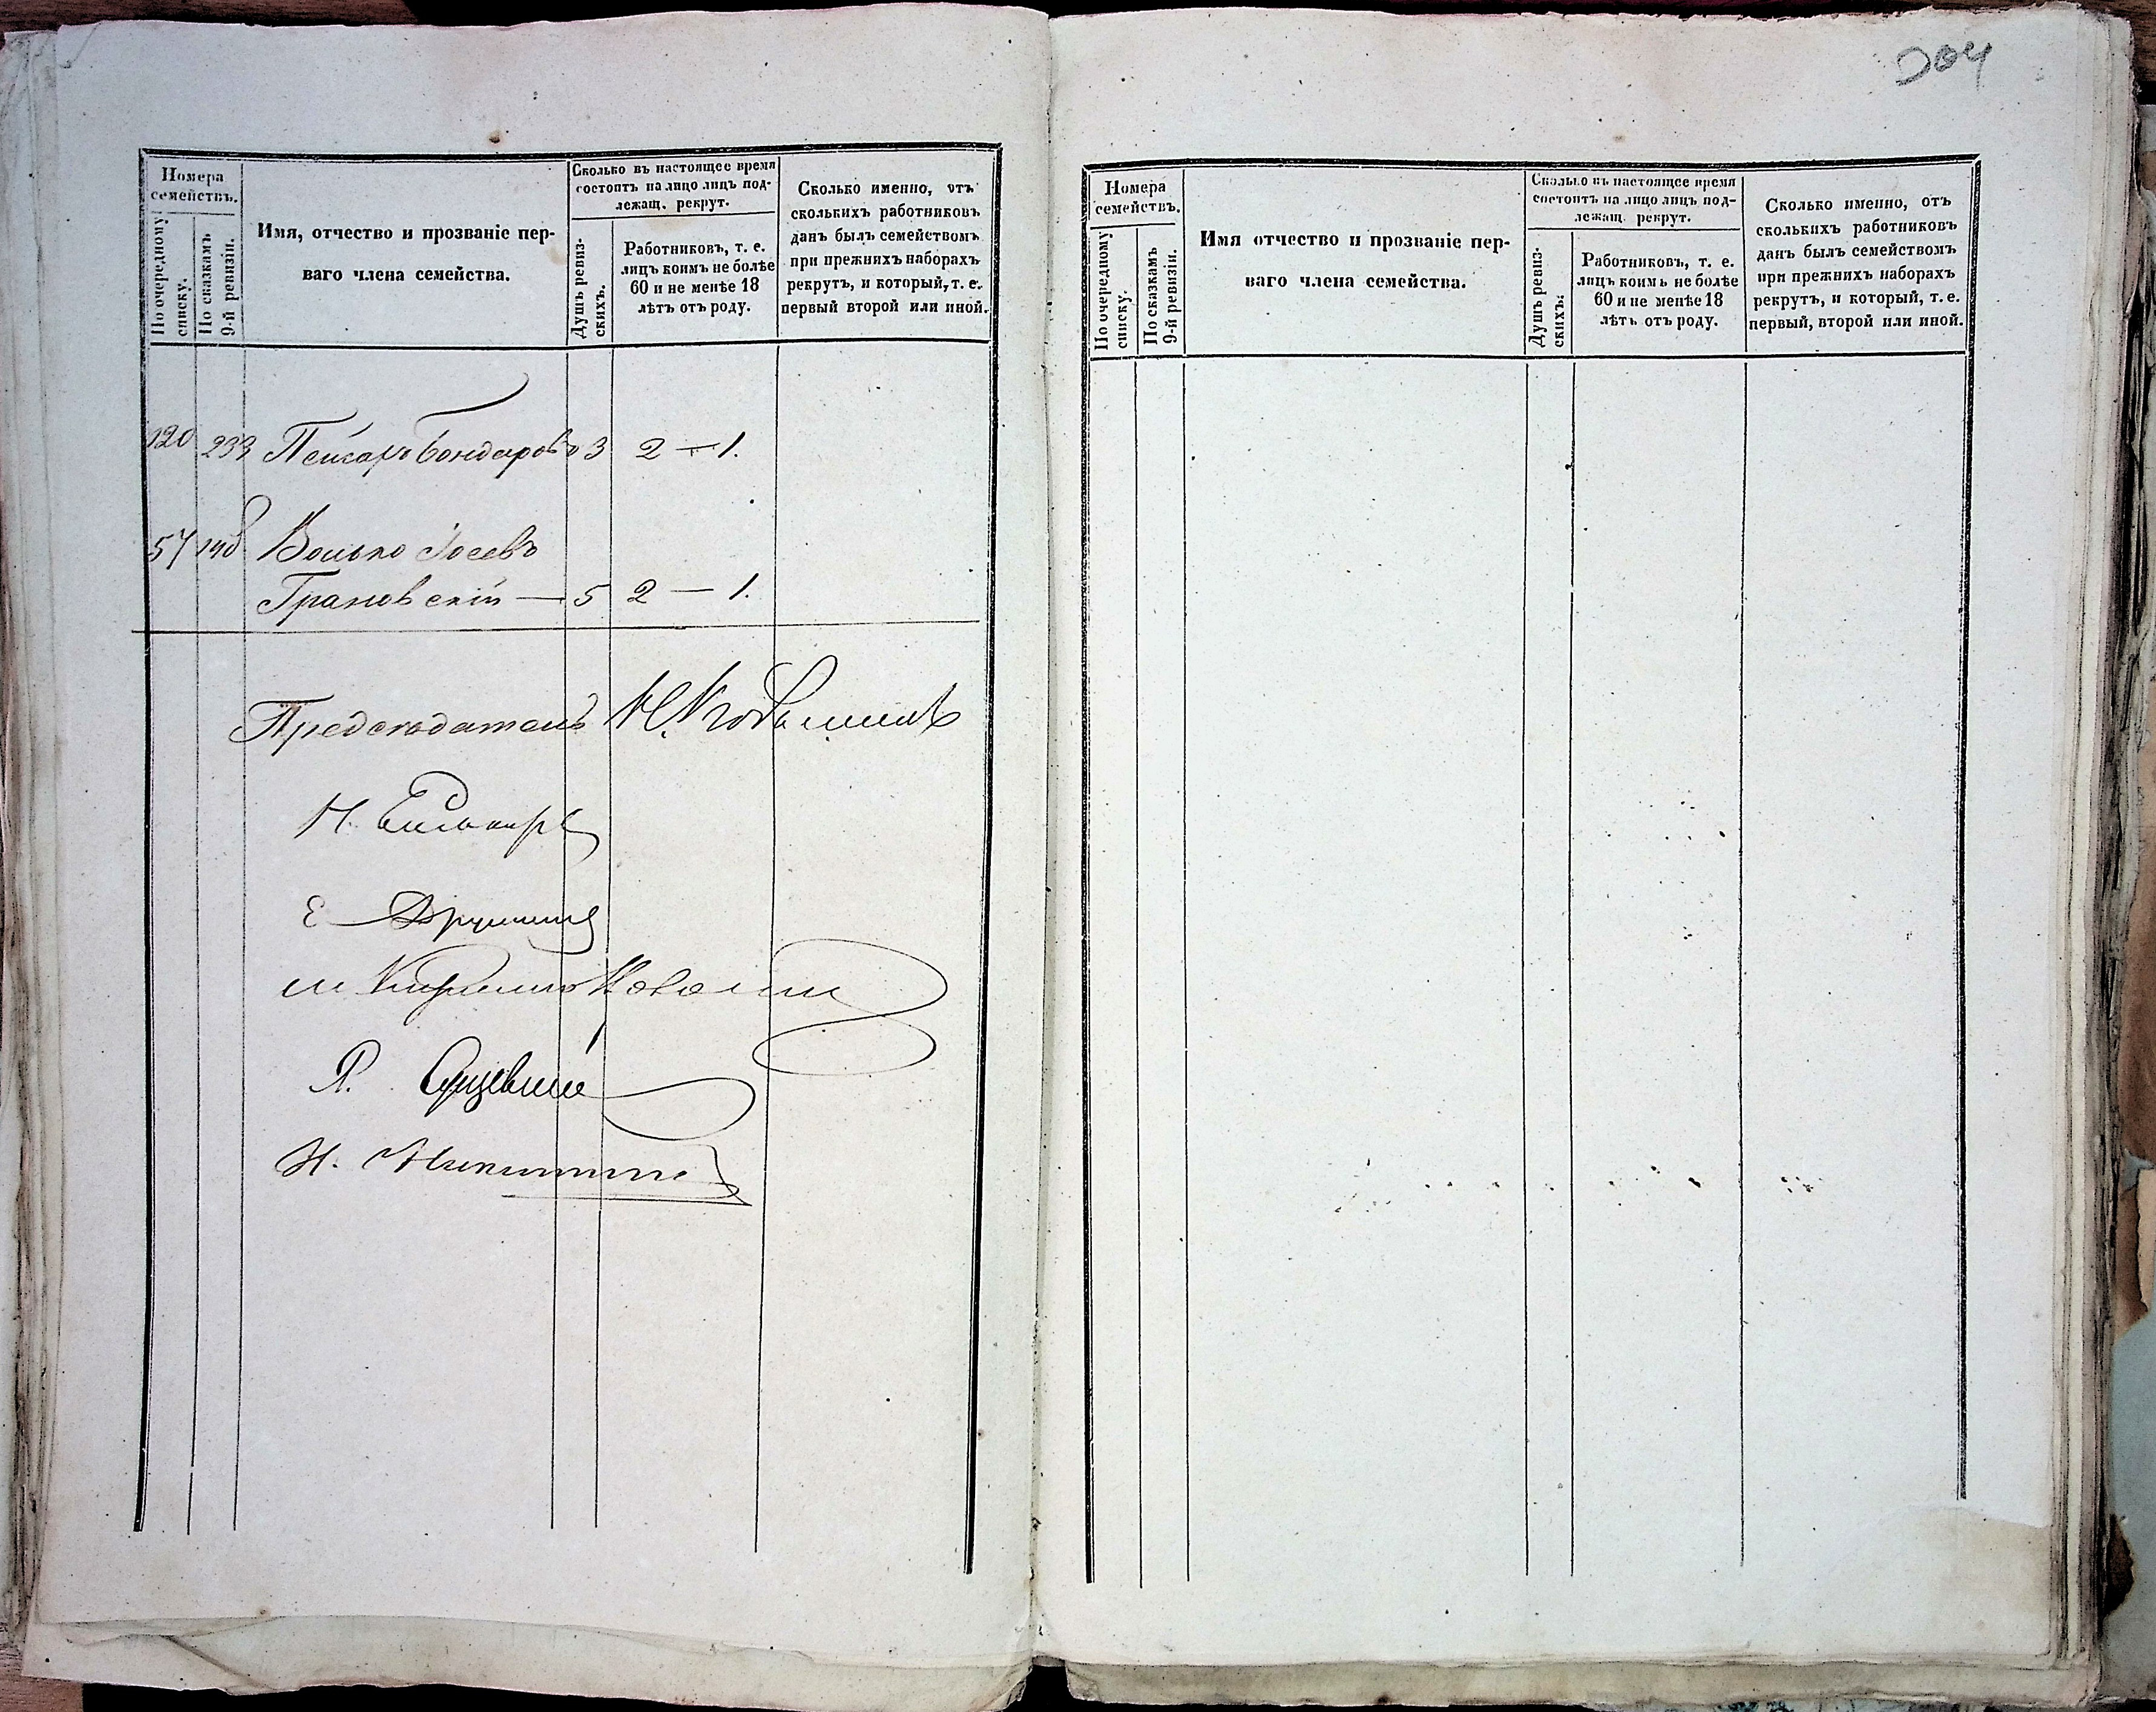 204
Номера
семействъ.
По очередному
списку.
По сказкамъ
9-й ревизіи.
Имя, отчество и прозваніе пер-
ваго члена семейства.
Сколько въ настоящее время
состоитъ на лицо лицъ под-
лежащ. рекрут.
Душъ ревиз-
скихъ.
Работниковъ, т. е.
лицъ коимъ не болѣе
60 и не менѣе 18
лѣтъ отъ роду.
Сколько именно, отъ
сколькихъ работниковъ
данъ былъ семействомъ
при прежнихъ наборахъ
рекрутъ, и который, т. е.
первый второй или иной.
120 233 Пейсахъ Бондаровъ 3 2 — 1.
57 148 Волько Іосевъ
Грановскій — 5 2 — 1.
Председатель
Н.
Е
Я.
Н. Никитин
Номера
семействъ.
По очередному
списку.
По сказкамъ
9-й ревизіи.
Имя отчество и прозваніе пер-
ваго члена семейства.
Сколько въ настоящее время
состоитъ на лицо лицъ под-
лежащ. рекрут.
Душъ ревиз-
скихъ.
Работниковъ, т. е.
лицъ коимъ не болѣе
60 и не менѣе 18
лѣтъ отъ роду.
Сколько именно, отъ
сколькихъ работниковъ
данъ былъ семействомъ
при прежнихъ наборахъ
рекрутъ, и который, т. е.
первый, второй или иной.